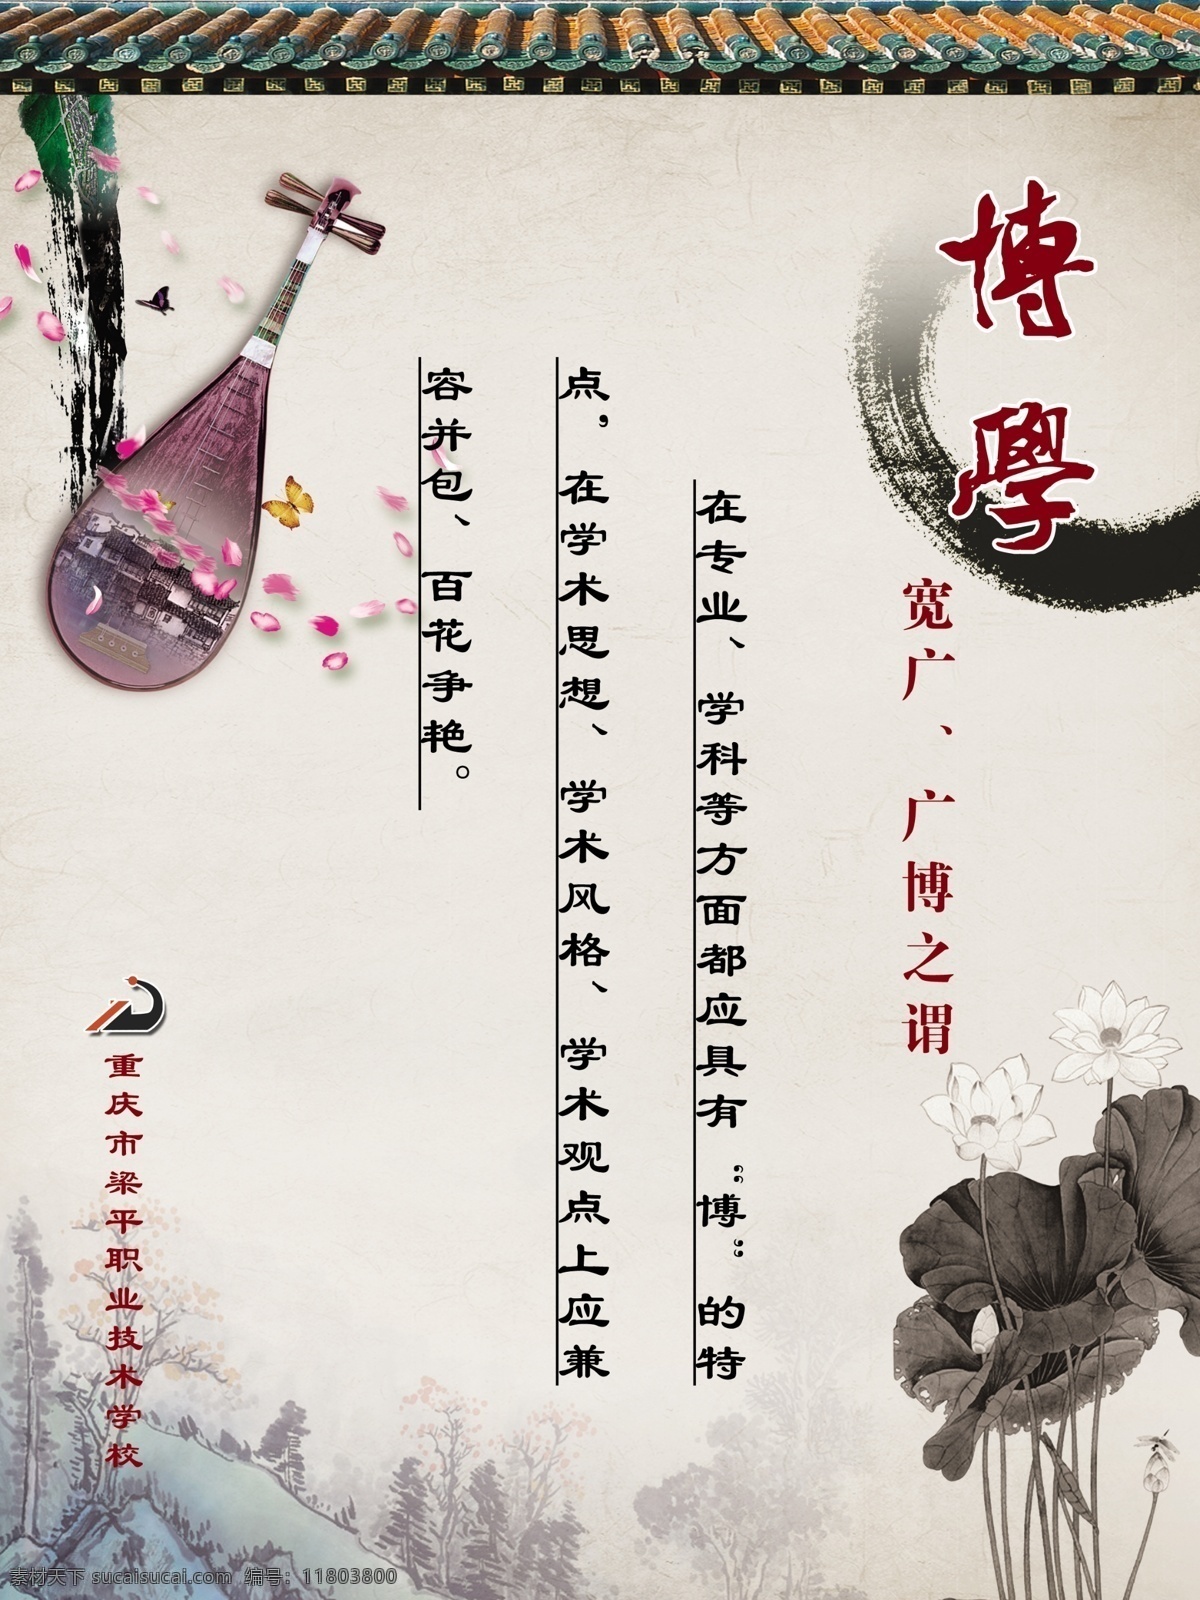 博學
宽广、广博之谓
在专业、学科等方面都应具有“博”的特
点，在学术思想、学术风格、学术观点上应兼
容并包、百花争艳。
重庆市梁平职业技术学校
素材天下 sucaisucai.com 编号：11803800